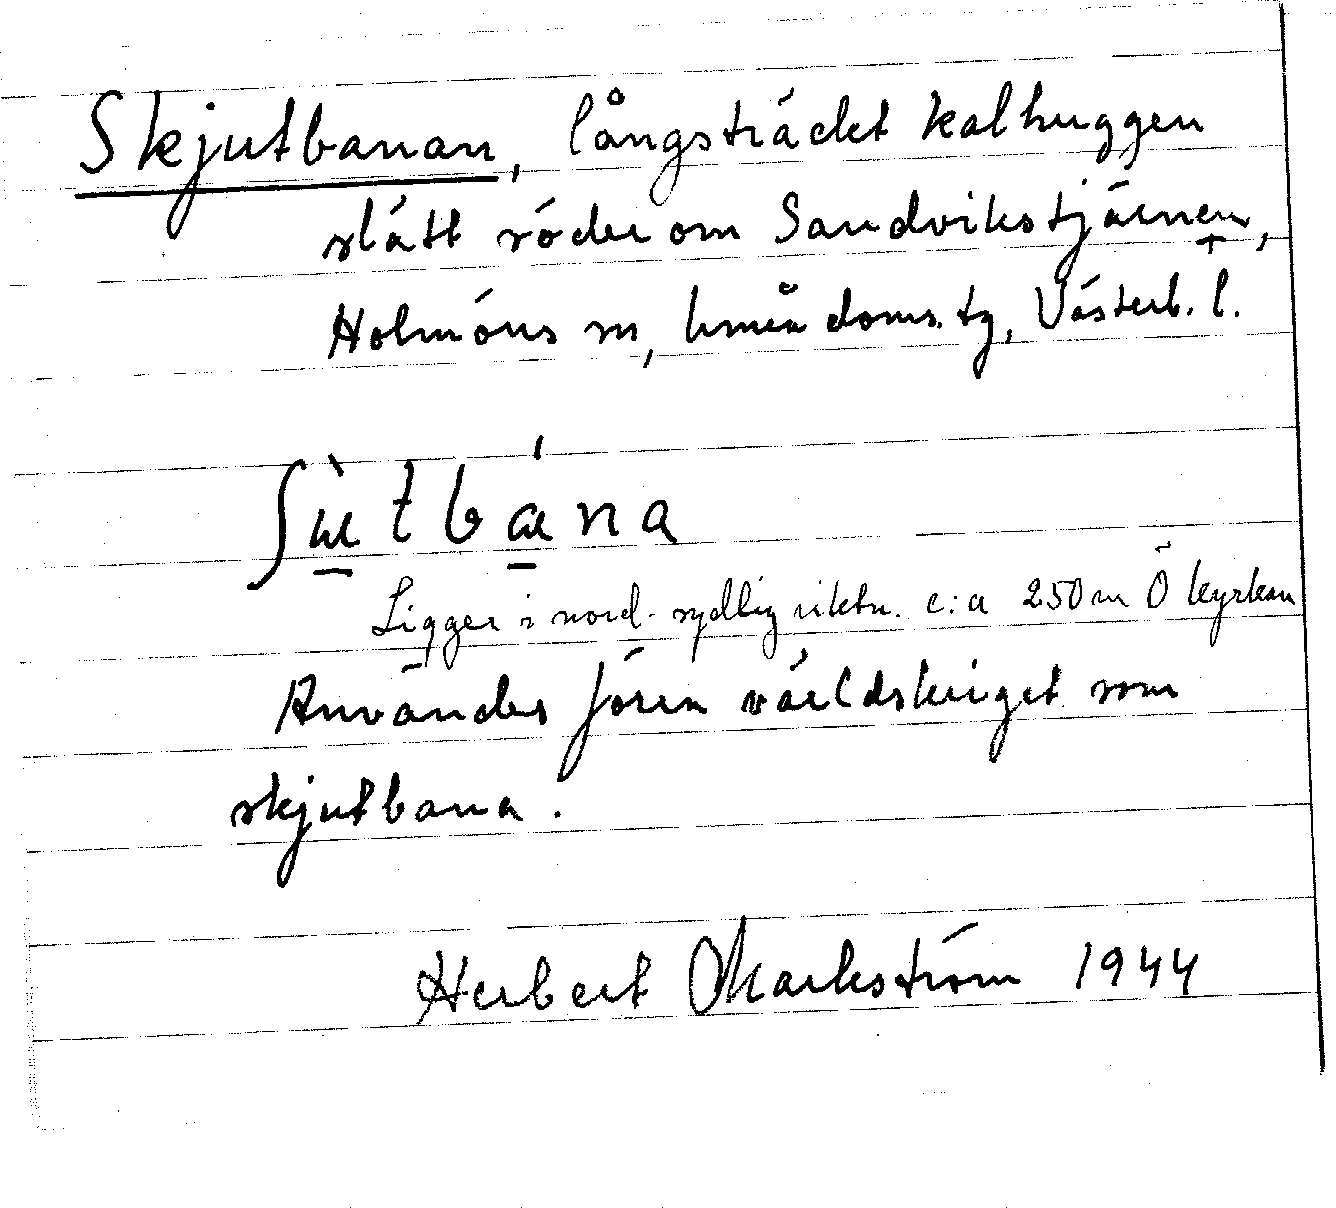 Skjutbanan, långsträckt kalhuggen
slätt söder om Sandvikstjärnen,
Holmöns sn, Umeå doms. tg, Västerb. l.
ʃù̲tbá̲na
Ligger i nord-sydlig riktn. c:a 250 m Ö kyrkan
Användes före världskriget som
skjutbana.
Herbert Markström 1944